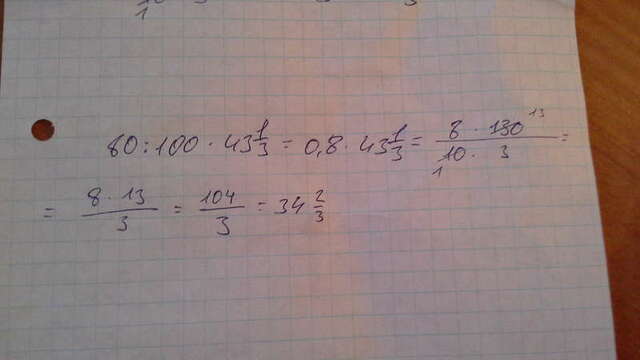 80 : 100 · 43 1/3 = 0,8 · 43 1/3 = (8 · 130 13)/(10 1 · 3) =
= (8 · 13)/3 = 104/3 = 34 2/3